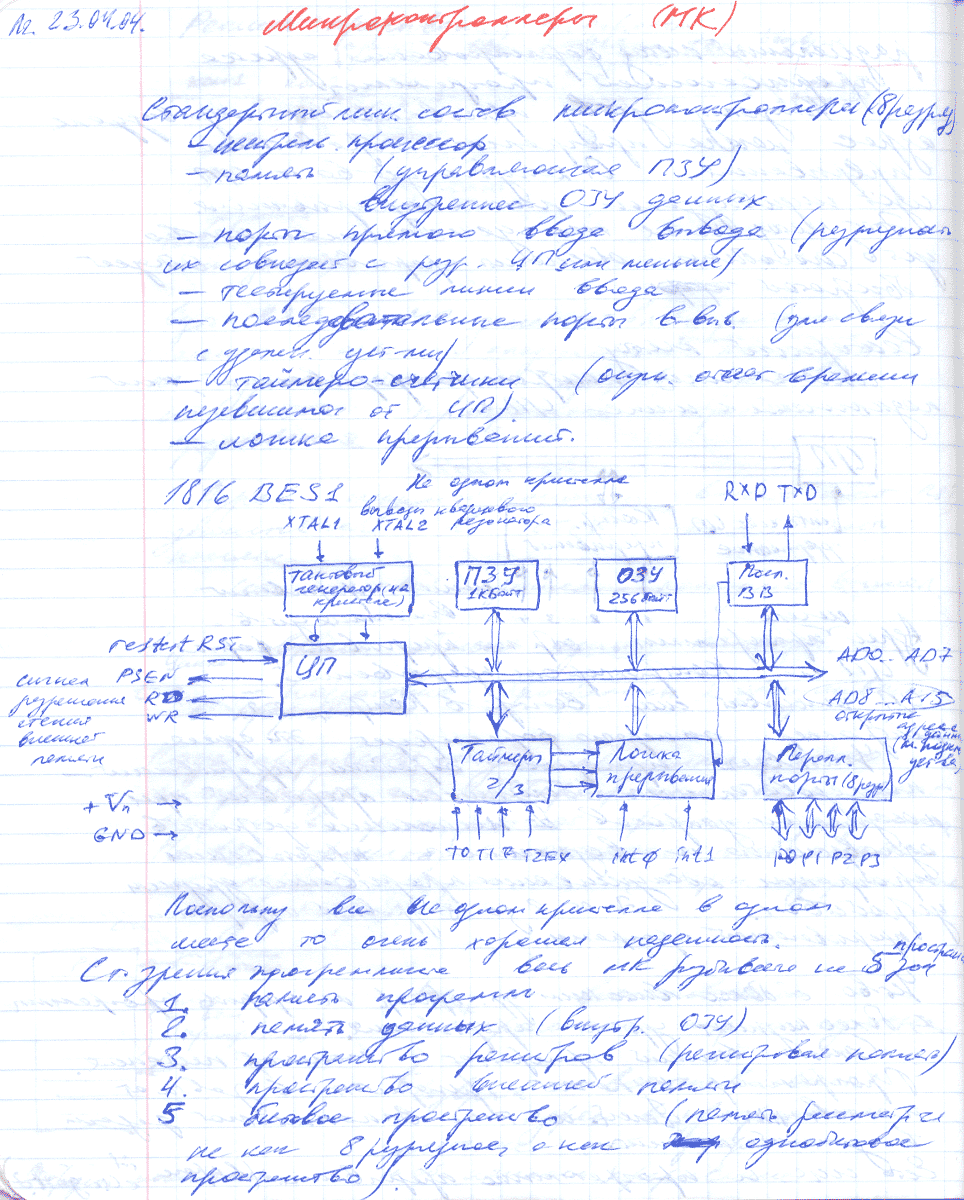 23.04.04.
Микроконтроллеры (МК)
Стандартный мин. состав микроконтроллера (8 разряд)
- централь процессор
- память (управляющая ПЗУ)
внутреннее ОЗУ данных
- порты прямого ввода вывода (разрядность
их совпадает с разр. ЦП или меньше)
- тестируемые линии ввода
- последовательные порты в-выв. (для связи
с удален. уст-ми)
- таймеро-счётчики (отсчет времени
независимо от ЦП)
- логика прерываний.
1816 ВЕ51 На одном кристалле
RXD TXD
выводы кварцевого
XTAL1 XTAL2 резонатора
тактовый
генератор (на
кристалле)
ПЗУ
1кбайт
ОЗУ
256 байт
Посл.
ВВ
restart RST
ЦП
PSEN
RD
WR
сигнал
разрешения
чтения
внешней
памяти
AD0.. AD7
AD8...A15
открытые
адреса
Таймеры
2/3
Логика
прерываний
Паралл.
порты (8 разр)
+Vп
GND
T0 T1 T2EX
int0 int1
P0 P1 P2 P3
Поскольку все на одном кристалле в одном
месте то очень хорошая надежность.
С т. зрения программиста весь МК разбивается на 5 зон
простран
1. память программ
2. память данных (внутр. ОЗУ)
3. пространство регистров (регистровая память)
4. пространство внешней памяти
5 битовое пространство (память
не как 8 разрядная, а как однобитовое
пространство).